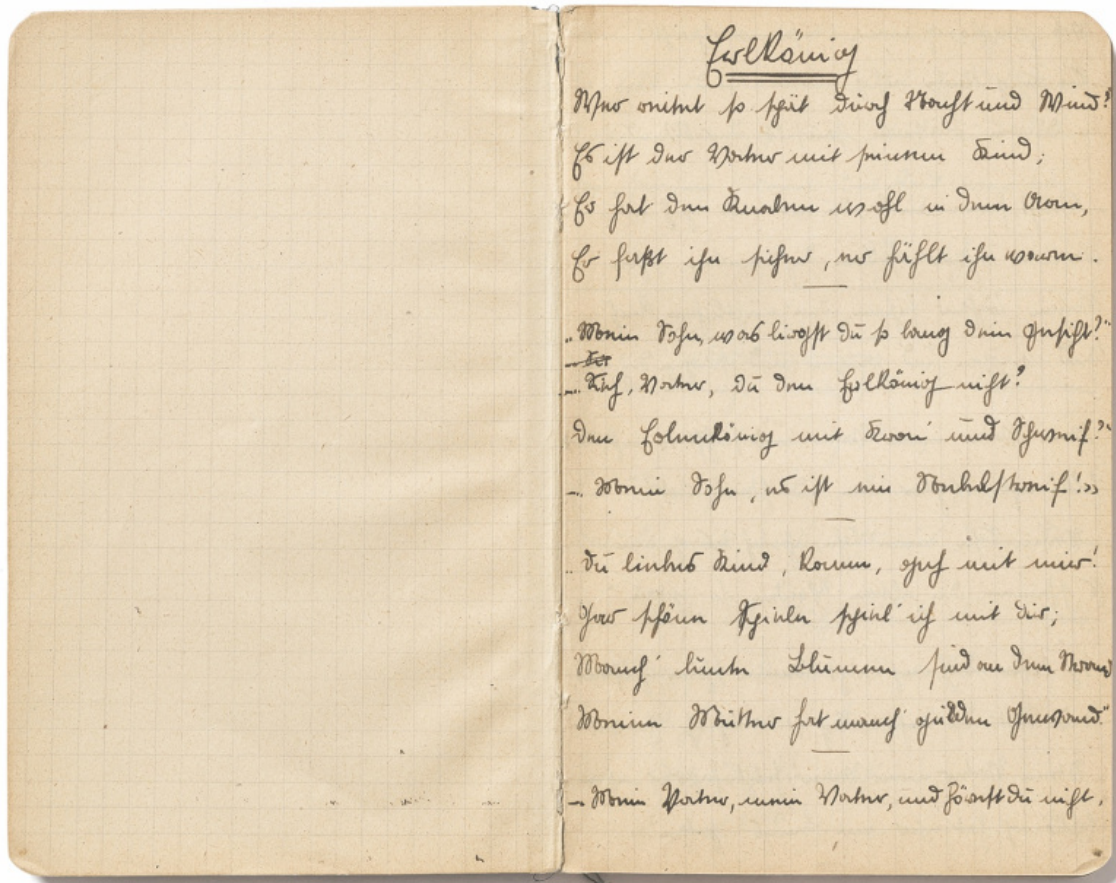 Erlkönig
Wer reitet so spät durch Nacht und Wind?
Es ist der Vater mit seinem Kind;
Er hat den Knaben wohl in dem Arm,
Er faßt ihn sicher, er hählt ihn warm.
„Mein Sohn, was birgst du so bang dein Gesicht?“
– Sieh, Vater, du den Erlkönig nicht?
Den Erlenkönig mit Kron' und Schweif?“
– Mein Sohn, es ist ein Nebelstreif!»
„Du liebes Kind, komm, geh mit mir!
Gar schöne Spiele spiel' ich mit dir;
Manch' bunte Blumen sind an dem Strand
Meine Mutter hat manch' gülden Gewand.“
– Mein Vater, mein Vater, und hörest du nicht,